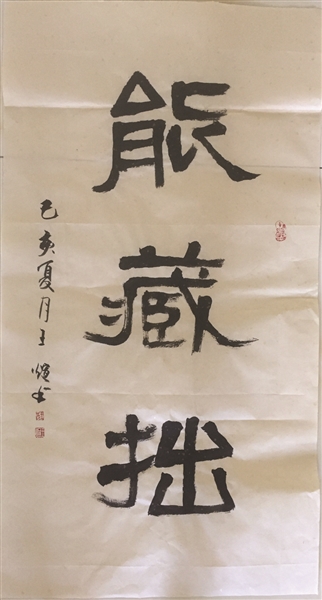 能藏拙
己亥夏月王煜书